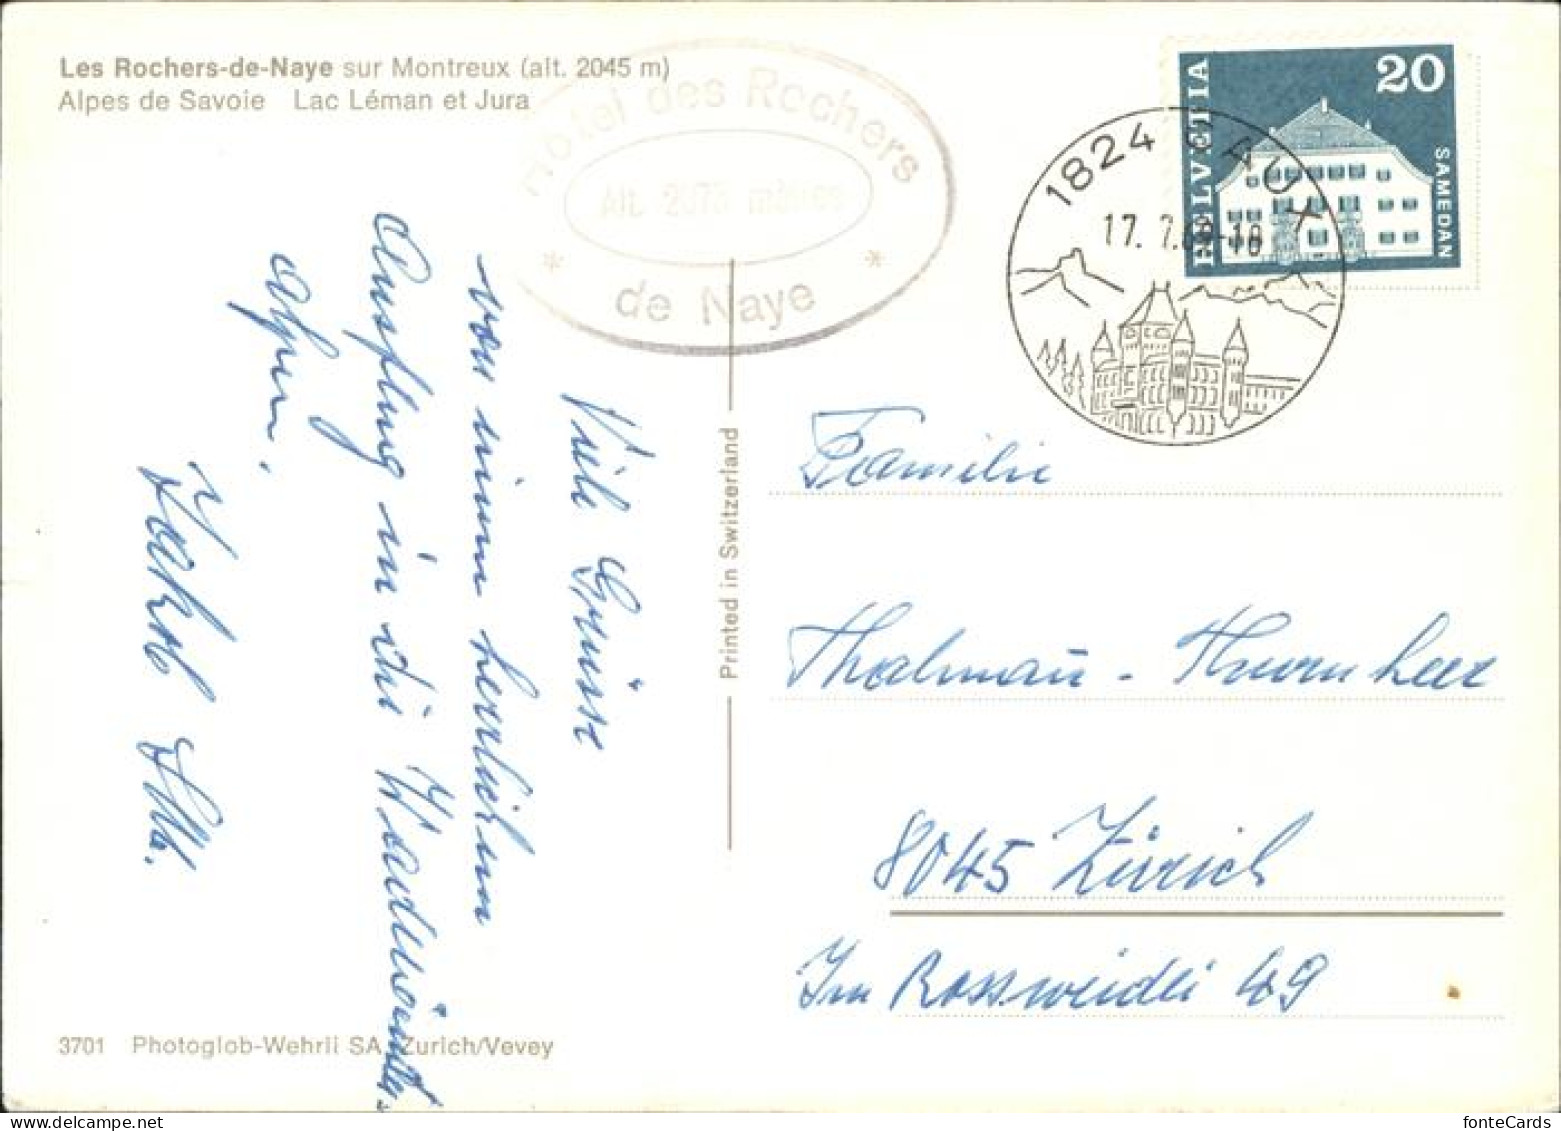 Les Rochers-de-Naye sur Montreux (alt. 2045 m)
Alpes de Savoie Lac Léman et Jura
Hôtel des Rochers
Alt. 2073 mètres
de Naye
1824 CAUX
17. 7.69-18
HELVETIA
20
SAMEDAN
Viele Grüsse
von einem herrlichen
Ausflug in die Waadtländer
alpen.
Printed in Switzerland
Familie
Thalmann - Thurnheer
8045 Zürich
Im Rossweidli 49
3701 Photoglob-Wehrli SA, Zurich/Vevey
fonteCards